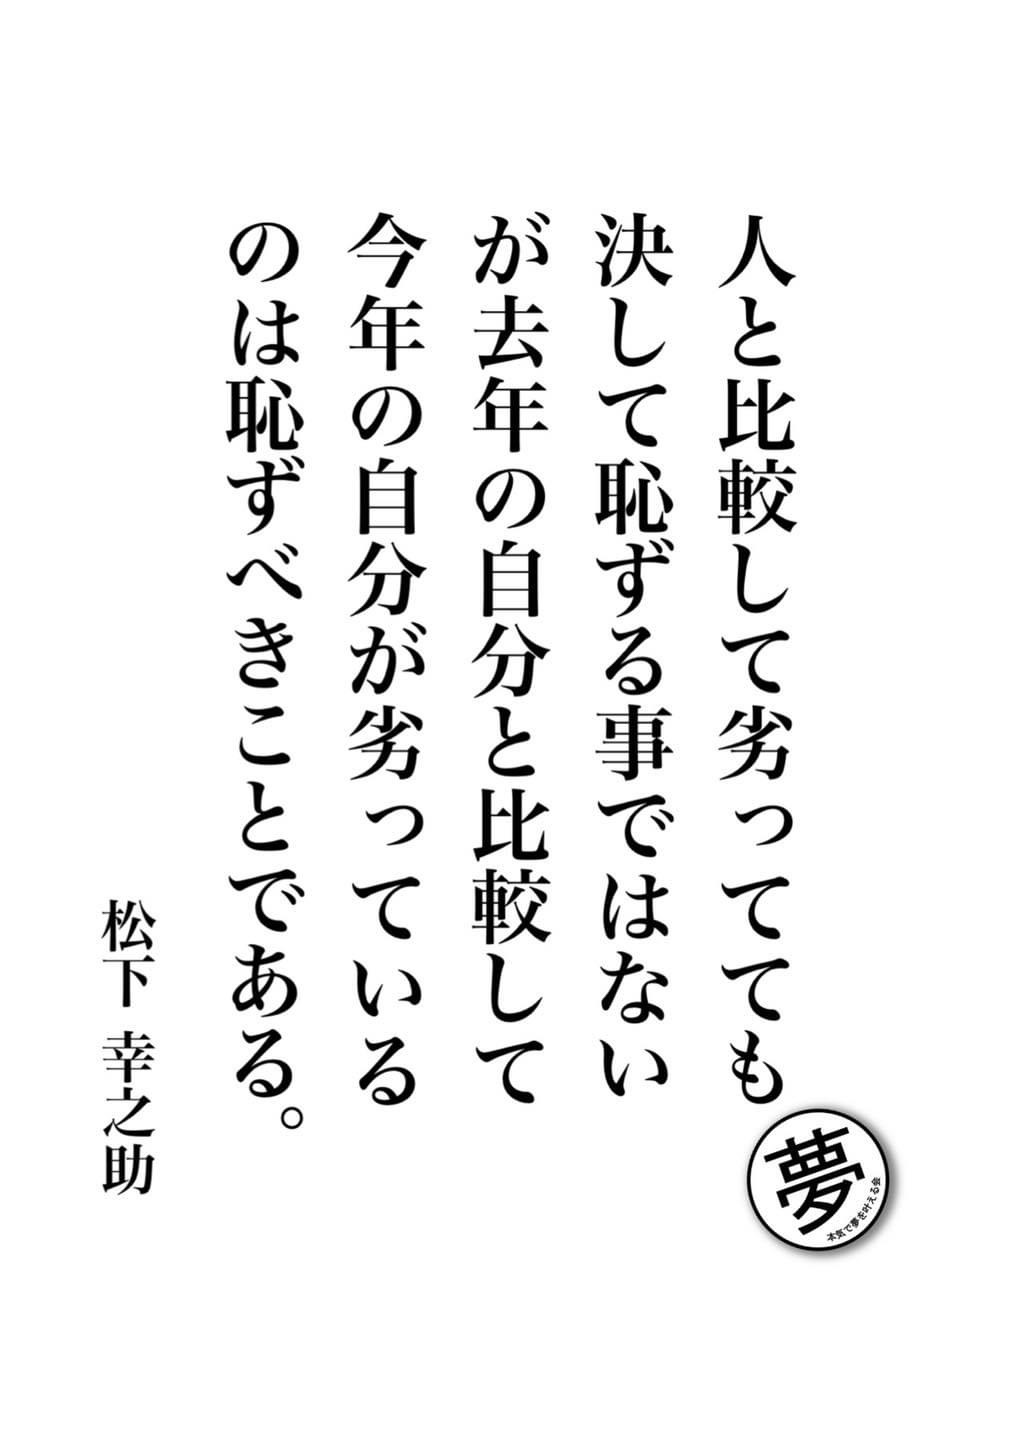 人と比較して劣ってても
決して恥ずる事ではない
が去年の自分と比較して
今年の自分が劣っている
のは恥ずべきことである。
松下 幸之助
夢
本気で夢を叶える会